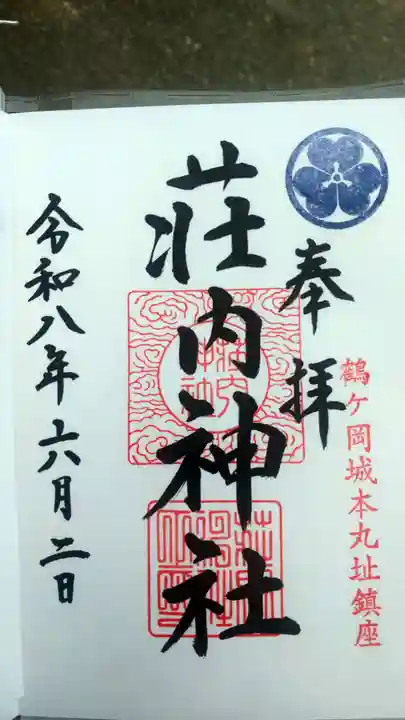 奉拝
鶴ヶ岡城本丸址鎮座
荘内神社
令和八年六月二日